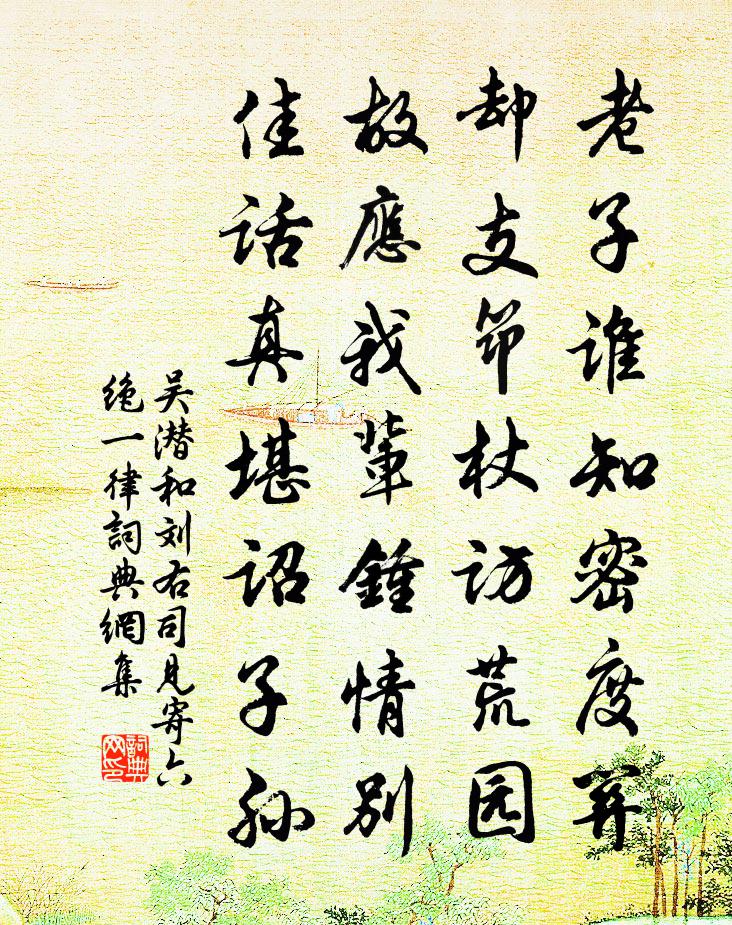 老子谁知密度関
却支笻杖访荒园
故應我輩鍾情别
佳话真堪诏子孙
吴潜和刘右司见寄六
绝一律詞典網集
詞典网印